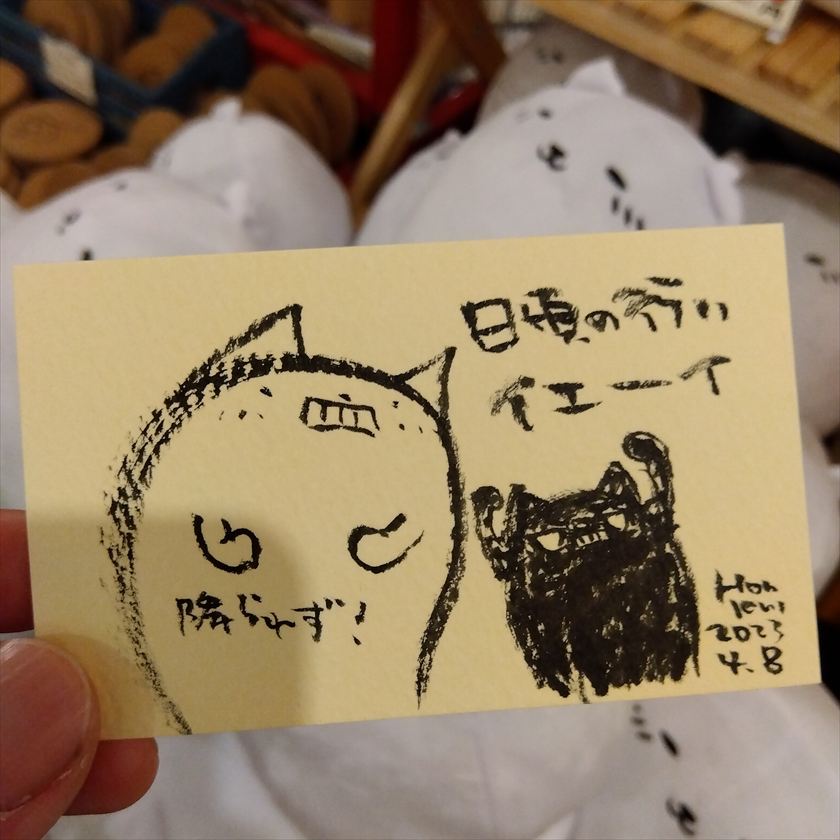 日頃の行い
イエーイ
降られず!
Hon
2023
4.8